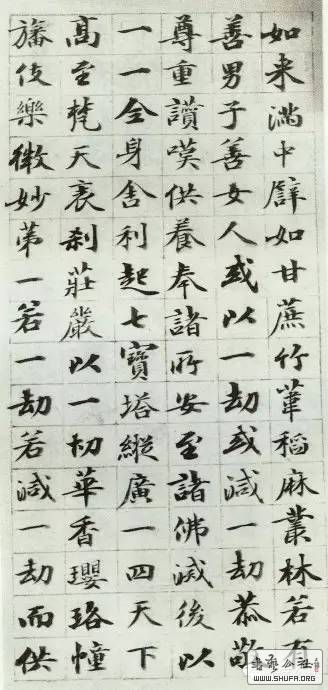 如来滿中譬如甘蔗竹葦稻麻叢林若有
善男子善女人或以一劫或減一劫恭敬
尊重讃嘆供養奉諸所安至諸佛滅後以
一一全身舎利起七寶塔縱廣一四天下
髙至梵天表刹莊嚴以一切華香瓔珞幢
旛伎樂微妙苐一若一劫若減一劫而供
WWW.SHUFA.ORG